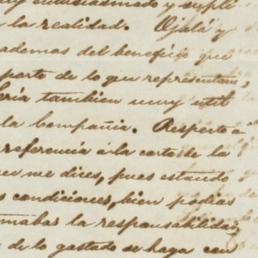 entusiasmado y supli
la realidad. Ojalá y
ademas del beneficio que
parte de lo que representan,
ería tambien muy util
la Compañia. Respecto a
referencia á la corte de la
me dices, pues estando
condiciones, bien podias
mabar la responsabilidad
de lo gastado se haga con